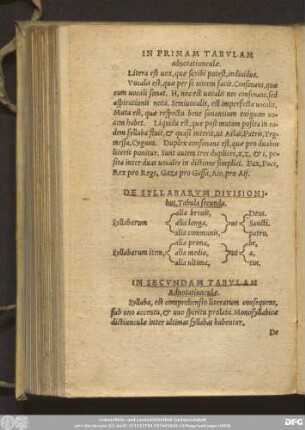 IN PRIMAM TABVLAM
adnotatiunculæ.
Litera est vox, quæ scribi potest, indiuidua.
Vocalis est, quæ per se vocem facit. Consonans, quæ
cum vocali sonat. H, nec est vocalis nec consonans, sed
aspirationis nota. Semiuocalis, est imperfecta vocalis.
Muta est, quæ respectu bene sonantium exiguam vo-
cem habet. Liquida est, quæ post mutam posita in ea-
dem syllaba fluit, &
Duplex consonans est, quæ pro duabus
literis ponitur. Sunt autem tres duplices, x, z, & i, po-
sita inter duas vocales in dictione simplici. Pax, Pacs,
Rex pro Regs, Gaza pro Gassa, Aio, pro Aij.
DE SYLLABARVM DIVISIONI-
bus, Tabula secunda.
Syllabarum
alia breuis,
alia longa,
alia communis,
vt
Deus.
Sancti.
patris.
Syllabarum item,
alia prima,
alia media,
alia ultima,
vt
be,
a,
tus.
IN SECVNDAM TABVLAM
Adnotatiunculæ.
Syllaba, est comprehensio literarum consequens,
sub uno accentu, & uno spiritu prolata. Monosyllabicæ
dictiunculæ inter ultimas syllabas habentur.
De